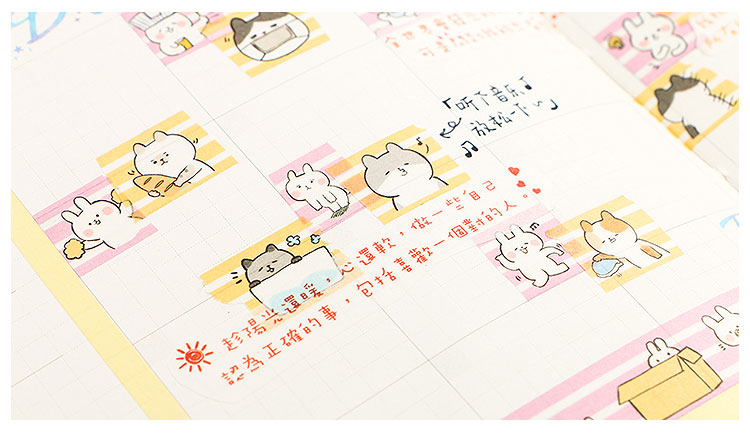 「听下音乐♪
放松一下～」
趁陽光還暖，心還軟，做一些自己
認為正確的事，包括喜歡一個對的人。